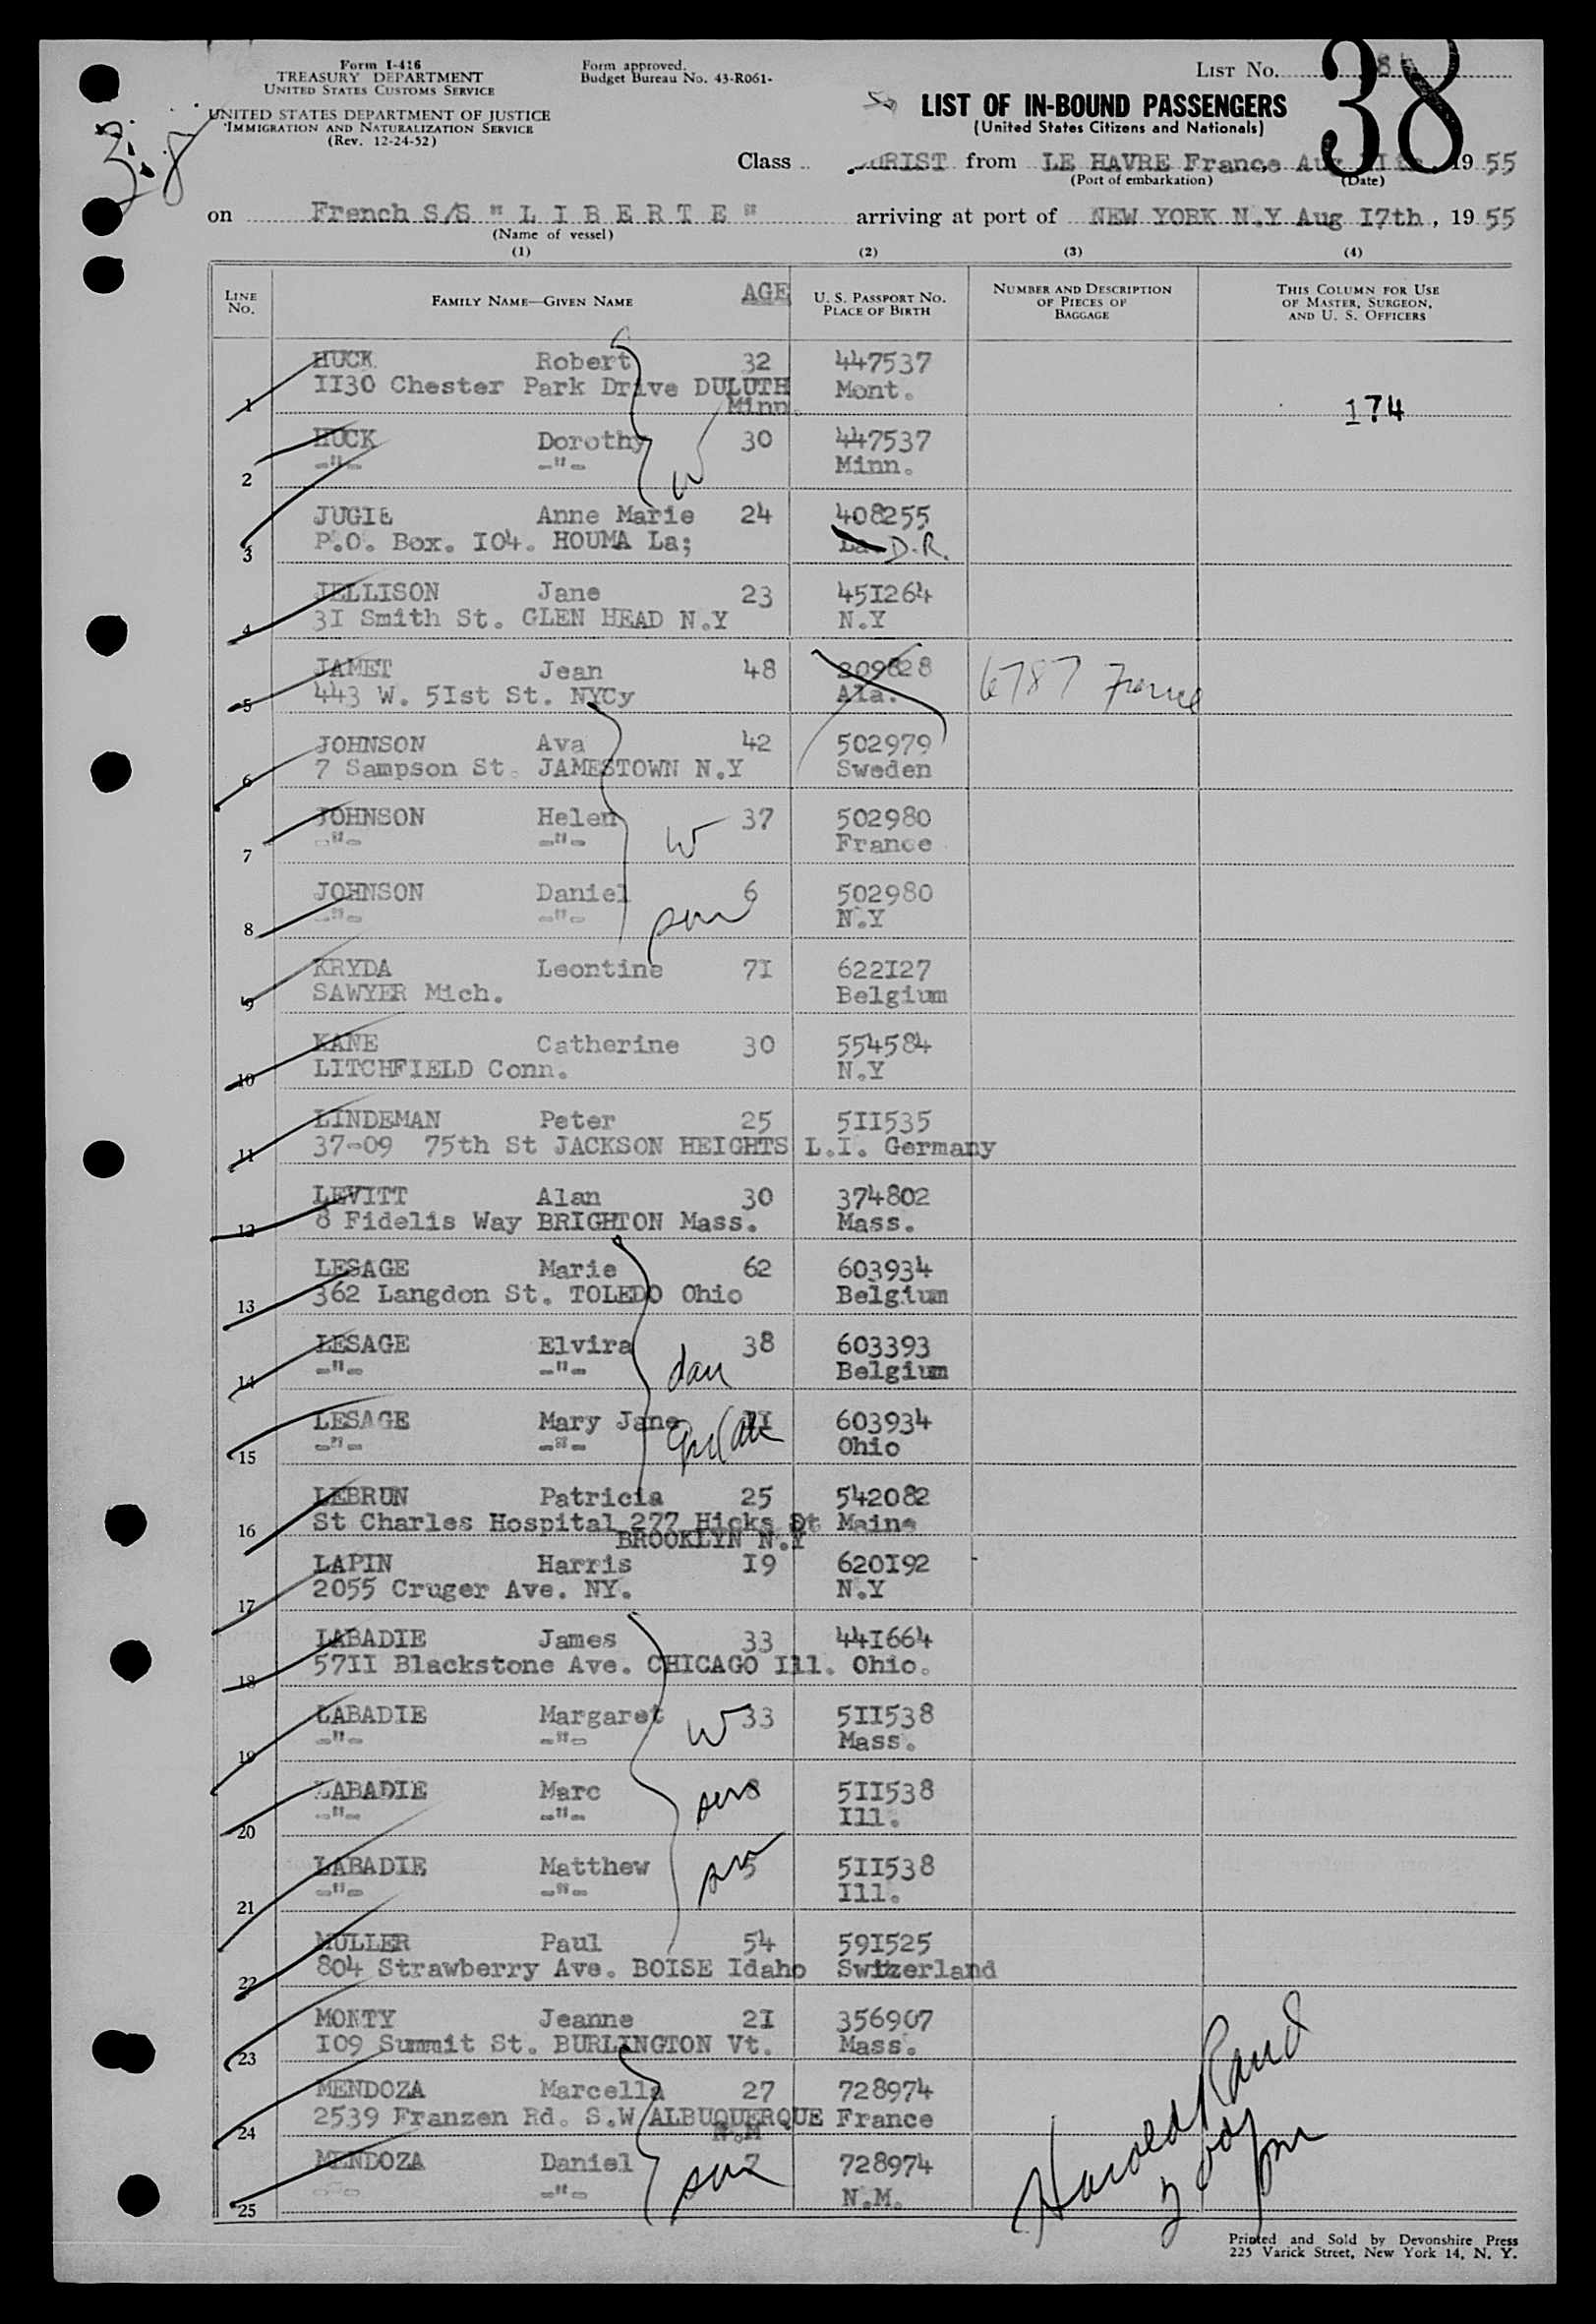 Form I-416
TREASURY DEPARTMENT
UNITED STATES CUSTOMS SERVICE
Form approved.
Budget Bureau No. 43-R061-
LIST No.
38
UNITED STATES DEPARTMENT OF JUSTICE
IMMIGRATION AND NATURALIZATION SERVICE
(Rev. 12-24-52)
LIST OF IN-BOUND PASSENGERS
(United States Citizens and Nationals)
Class TOURIST from LE HAVRE France, Aug 11th, 19 55
(Port of embarkation) (Date)
on French S/S " L I B E R T E " arriving at port of NEW YORK N.Y Aug I7th, 19 55
(Name of vessel)
(1) (2) (3) (4)
LINE No. FAMILY NAME—GIVEN NAME AGE U. S. PASSPORT No. PLACE OF BIRTH NUMBER AND DESCRIPTION OF PIECES OF BAGGAGE THIS COLUMN FOR USE OF MASTER, SURGEON, AND U. S. OFFICERS
HUCK Robert 32 447537
1 II30 Chester Park Drive DULUTH Minn. Mont.
174
HUCK Dorothy 30 447537
2 -"- -"- W Minn.
JUGIE Anne Marie 24 408255
3 P.O. Box. I04. HOUMA La; La D.R.
JELLISON Jane 23 45I264
4 3I Smith St. GLEN HEAD N.Y N.Y
JAMET Jean 48 209828 6787 France
5 443 W. 5Ist St. NYCy Ala.
JOHNSON Ava 42 502979
6 7 Sampson St. JAMESTOWN N.Y Sweden
JOHNSON Helen 37 502980
7 -"- -"- W France
JOHNSON Daniel 6 502980
8 -"- -"- son N.Y
KRYDA Leontine 7I 622I27
9 SAWYER Mich. Belgium
KANE Catherine 30 554584
10 LITCHFIELD Conn. N.Y
LINDEMAN Peter 25 5II535
11 37-09 75th St JACKSON HEIGHTS L.I. Germany
LEVITT Alan 30 374802
12 8 Fidelis Way BRIGHTON Mass. Mass.
LESAGE Marie 62 603934
13 362 Langdon St. TOLEDO Ohio Belgium
LESAGE Elvira 38 603393
14 -"- -"- dau Belgium
LESAGE Mary Jane II 603934
15 -"- -"- Ohio
LEBRUN Patricia 25 542082
16 St Charles Hospital 277 Hicks St Maine
BROOKLYN N.Y
LAPIN Harris I9 620I92
17 2055 Cruger Ave. NY. N.Y
LABADIE James 33 44I664
18 57II Blackstone Ave. CHICAGO Ill. Ohio.
LABADIE Margaret W 33 5II538
19 -"- -"- Mass.
LABADIE Marc son 8 5II538
20 -"- -"- Ill.
LABADIE Matthew son 5 5II538
21 -"- -"- Ill.
MULLER Paul 54 59I525
22 804 Strawberry Ave. BOISE Idaho Switzerland
MONTY Jeanne 2I 356907
23 I09 Summit St. BURLINGTON Vt. Mass.
MENDOZA Marcella 27 728974
24 2539 Franzen Rd. S.W ALBUQUERQUE France
N.M
MENDOZA Daniel 7 728974
25 -"- -"- son N.M.
Harold Rand
Printed and Sold by Devonshire Press
225 Varick Street, New York 14, N. Y.